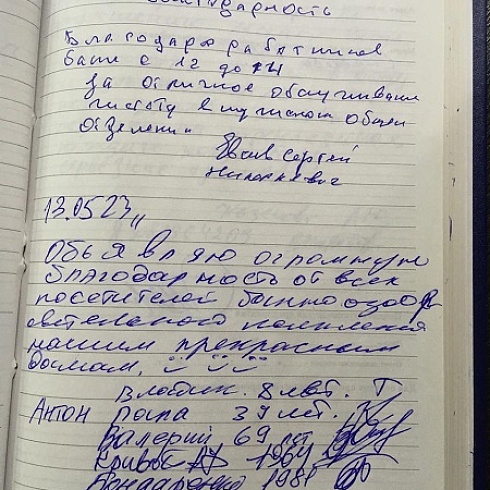 Благодарность
Благодарю работников
бани с 12 до 14
за отличное обслуживание
чистоту в мужском общем
отделении
Сергей
13.05.23
Объявляю огромную
благодарность от всех
посетителей банно оздоро
вительного
нашим прекрасным
дамам.
8 лет. Т
Антон папа 39 лет.
Валерий 69 лет
Кривов 1964
Бондаренко 1981